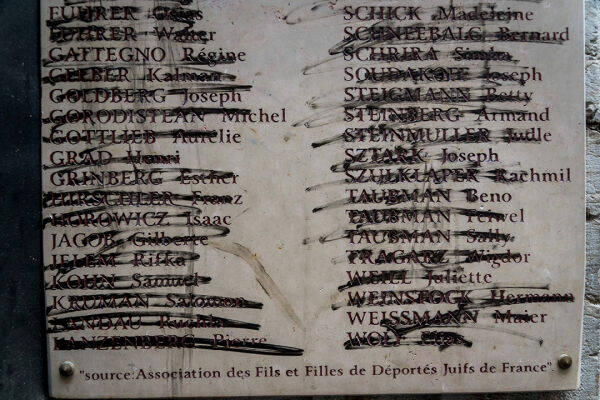 FUHRER
FUHRER Walter
GATTEGNO Régine
GELBER Kalman
GOLDBERG Joseph
GORODISTEAN Michel
GOTTLIEB Aurélie
GRAD Henri
GRINBERG Esther
HIRSCHLER Franz
HOROWICZ Isaac
JACOB Gilberte
JELEM Rifka
KOHN Samuel
KRUMAN Salomon
LANDAU
LANZENBERG Pierre
SCHICK Madeleine
SCHNEEBALG Bernard
SCHRIRA Simha
SOUDAKOFF Joseph
STEIGMANN Betty
STEINBERG Armand
STEINMULLER Judle
SZTARK Joseph
SZULKLAPER Rachmil
TAUBMAN Beno
TAUBMAN Feiwel
TAUBMAN Sally
TRAGARZ Wigdor
WEILL Juliette
WEINSTOCK Hermann
WEISSMANN Maier
WOLF
"source:Association des Fils et Filles de Déportés Juifs de France"